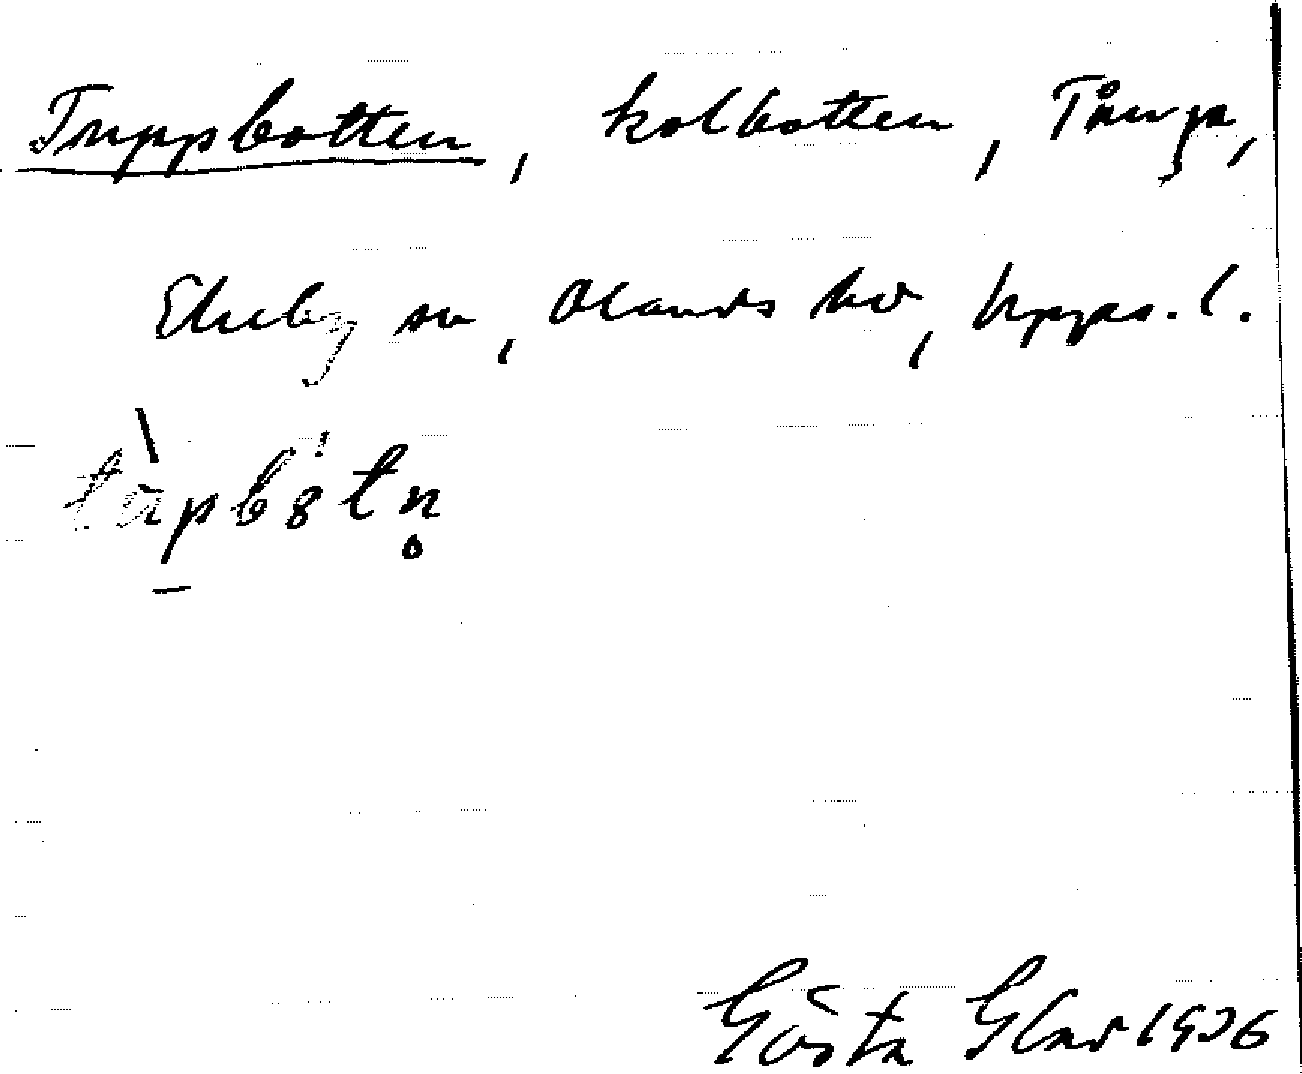 Tuppbotten, kolbotten, Tånga,
Ekeby sn, Olands hd, Upps. l.
Gösta Glad